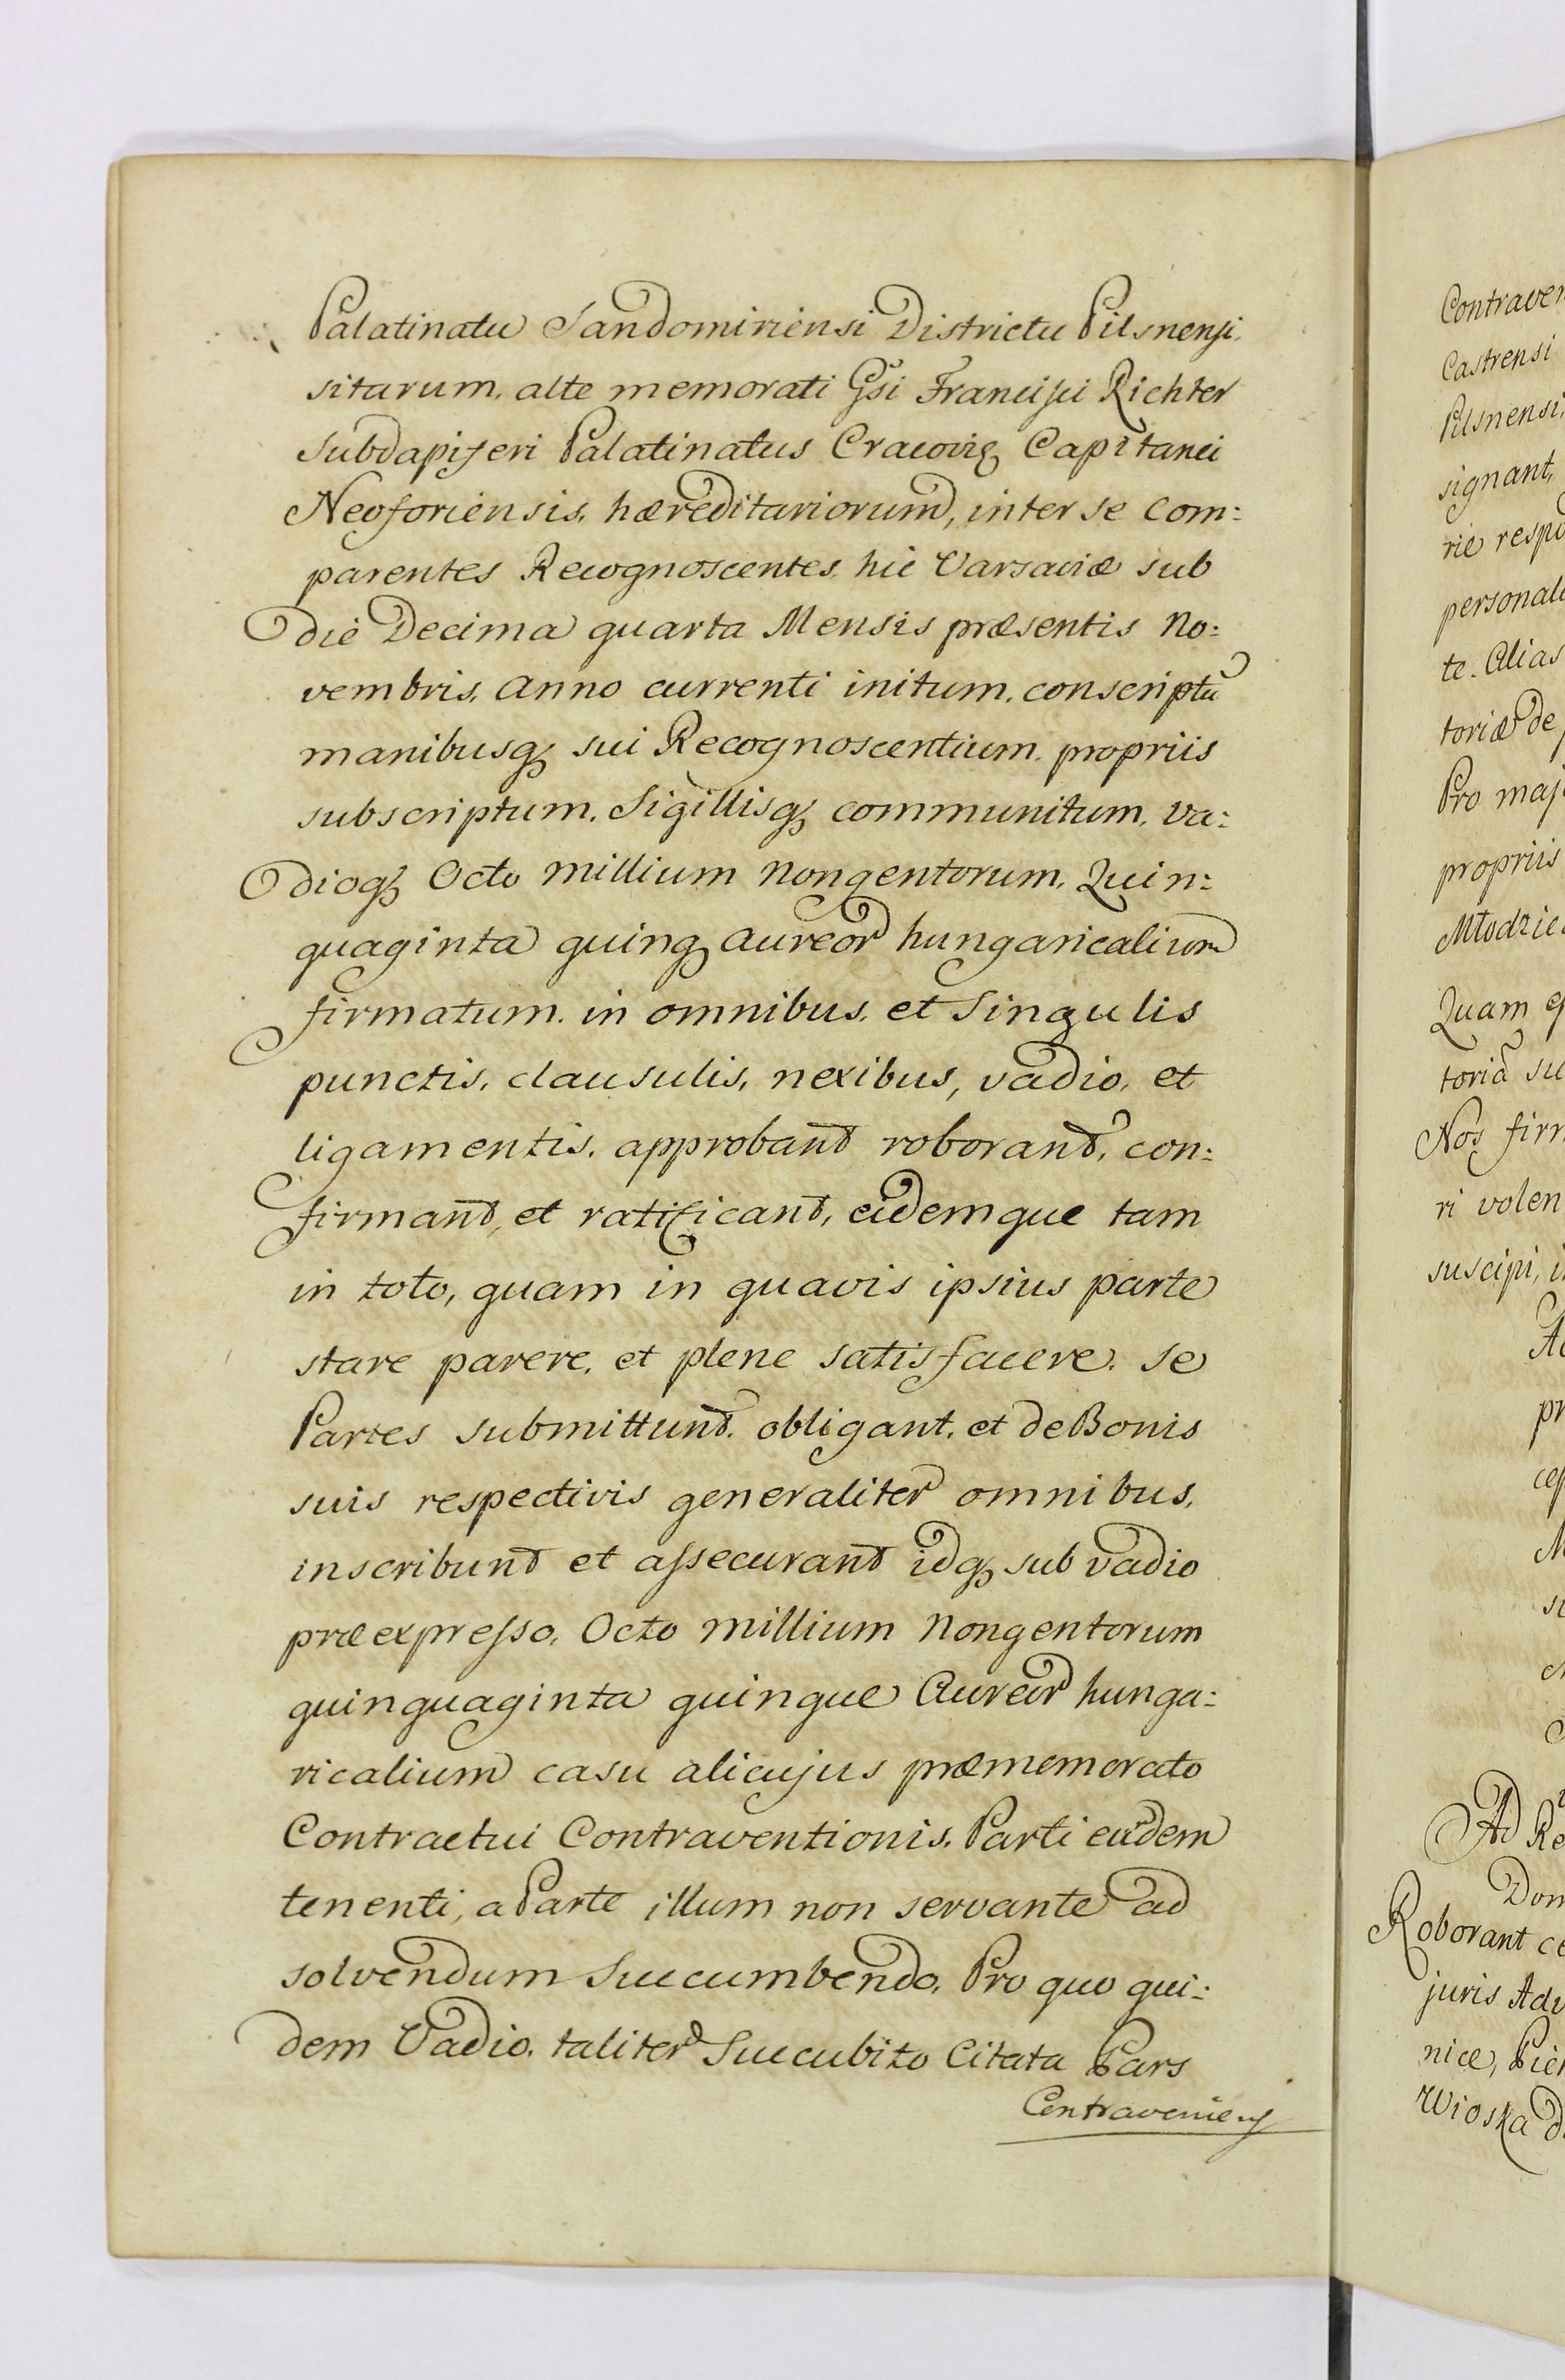 Palatinatu Sandomiriensi Districtu Pilsnensi.
sitarum. alte memorati Gsi Francisci Richter
Subdapiferi Palatinatus Cracovię Capitanei
Neoforiensis. hæreditariorum, inter se Com:
parentes Recognoscentes. hic Varsaviæ sub
die Decima quarta Mensis præsentis No:
vembris. Anno currenti initum. conscriptū
manibusq; sui Recognoscentium. propriis
subscriptum. Sigillisq; communitum. va:
dioq; Octo millium Nongentorum. Quin:
quaginta quinq; aureor hungaricalium
firmatum. in omnibus. et Singulis
punctis, clausulis, nexibus, vadio, et
ligamentis. approbant roborant, con:
firmant, et ratificant, eidemque tam
in toto, quam in quavis ipsius parte
stare parere, et plene satisfacere. se
Partes submittunt. obligant. et de Bonis
suis respectivis generaliter omnibus,
inscribunt et assecurant idq; sub vadio
præexpresso, Octo millium Nongentorum
quinquaginta quinque Aureor hunga:
ricalium casu alicujus præmemorato
Contractui Contraventionis. Parti eidem
tenenti, a Parte illum non servante ad
solvendum Succumbendo. Pro quo qui:
dem Vadio. taliter Succubito Citata Pars
Contraveniens
Contraven
Castrensi
Pilsnensi,
signant,
rie respo
personali
te. Alias
toriæ de
Pro maj
propriis
Młodzie
Quam
toriā su
Nos firm
ri volen
suscipi, i
pr
Ad Re
Dom
Roborant ce
juris Adv
nice, Pie
Wioska d